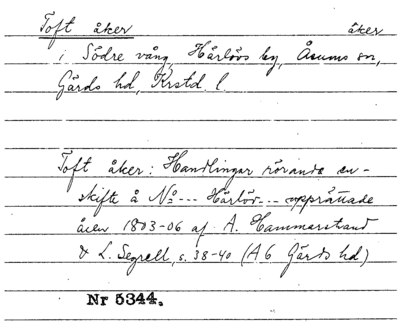 Toft åker åker
i Södre vång, Härlövs by, Åsums sn,
Gärds hd, Krstd. l.
Toft åker: Handlingar rörande en-
skifte å No --- Härlöv --- upprättade
åren 1803-06 af A. Hammarstrand
& L. Segrell, s. 38-40 (A 6 Gärds hd)
Nr 5344.